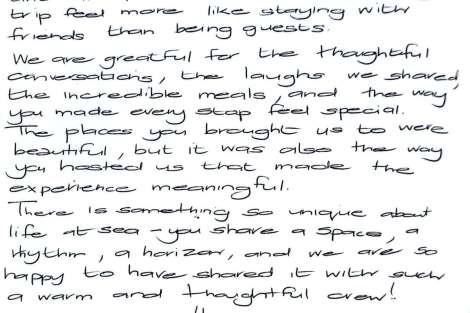 trip feel more like staying with
friends than being guests.
We are greatful for the thoughtful
conversations, the laughs we shared,
the incredible meals, and the way
you made every stop feel special.
The places you brought us to were
beautiful, but it was also the way
you hosted us that made the
experience meaningful.
There is something so unique about
life at sea - you share a space, a
rhythm, a horizon, and we are so
happy to have shared it with such
a warm and thoughtful crew!